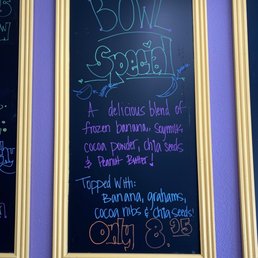 BOWL
Special
A delicious blend of
frozen banana, soymilk,
cocoa powder, chia seeds
& Peanut Butter!
Topped With:
Banana, grahams,
cocoa nibs & chia seeds!
Only 8.95